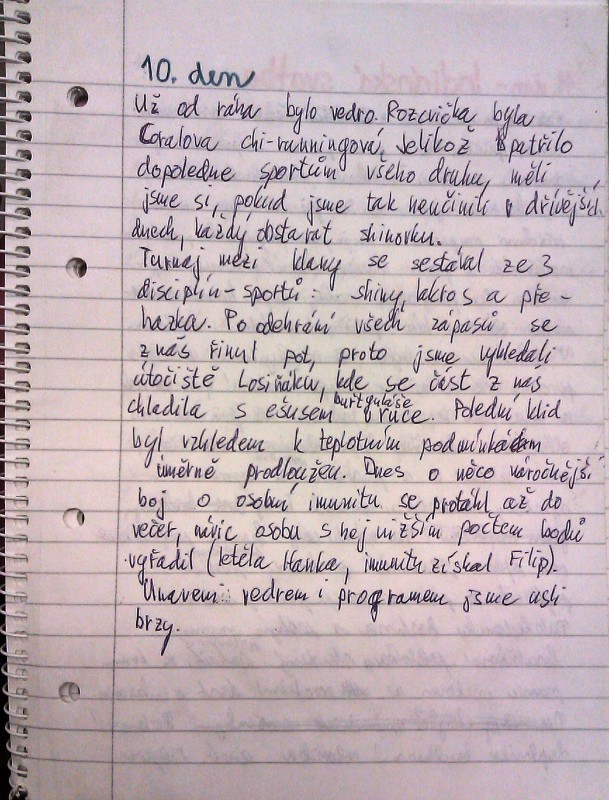 10. den
Už od rána bylo vedro. Rozcvička byla
Coralova chi-runningová. Jelikož patřilo
dopoledne sportům všeho druhu, měli
jsme si, pokud jsme tak neučinili v dřívějších
dnech, každý obstarat shinovku.
Turnaj mezi klany se sestával ze 3
disciplín-sportů: shiny, lakros a pře-
hazka. Po odehrání všech zápasů se
z nás řinul pot, proto jsme vyhledali
útočiště Losiňáku, kde se část z nás
chladila s ešusem burtguláše v ruce. Polední klid
byl vzhledem k teplotním podmínkám
úměrně prodloužen. Dnes o něco náročnější
boj o osobní imunitu se protáhl až do
večer, navíc osobu s nejnižším počtem bodů
vyřadil (letěla Hanka, imunitu získal Filip).
Unaveni vedrem i programem jsme usli
brzy.